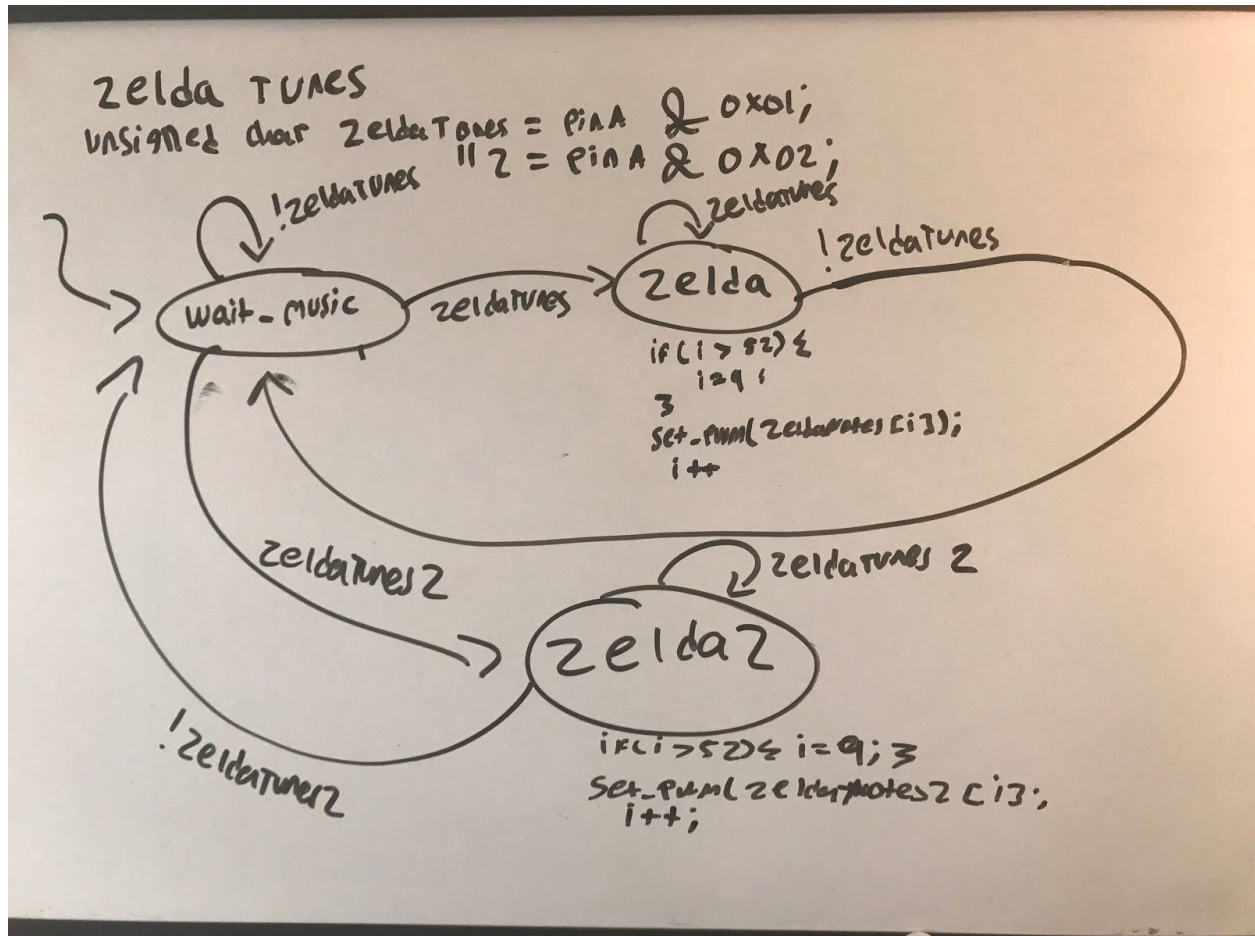 zelda Tunes
unsigned char zeldaTones = PinA & 0x01;
" 2 = PinA & 0x02;
!zeldaTunes
zeldaTunes
!zeldaTunes
wait_music
zeldaTunes
zelda
if(i > 52) {
i=9;
}
set_pwm(zeldaNotes[i]);
i++
zeldaTunes2
zeldaTunes 2
zelda2
!zeldaTunes2
if(i>52){ i=9; }
set_pwm(zeldaNotes2[i];
i++;